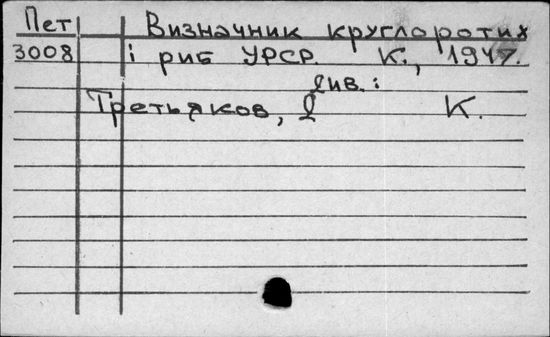 Пет Визначник круглоротих
3008 і риб УРСР. К., 1947.
див.:
Третьяков, Д К.